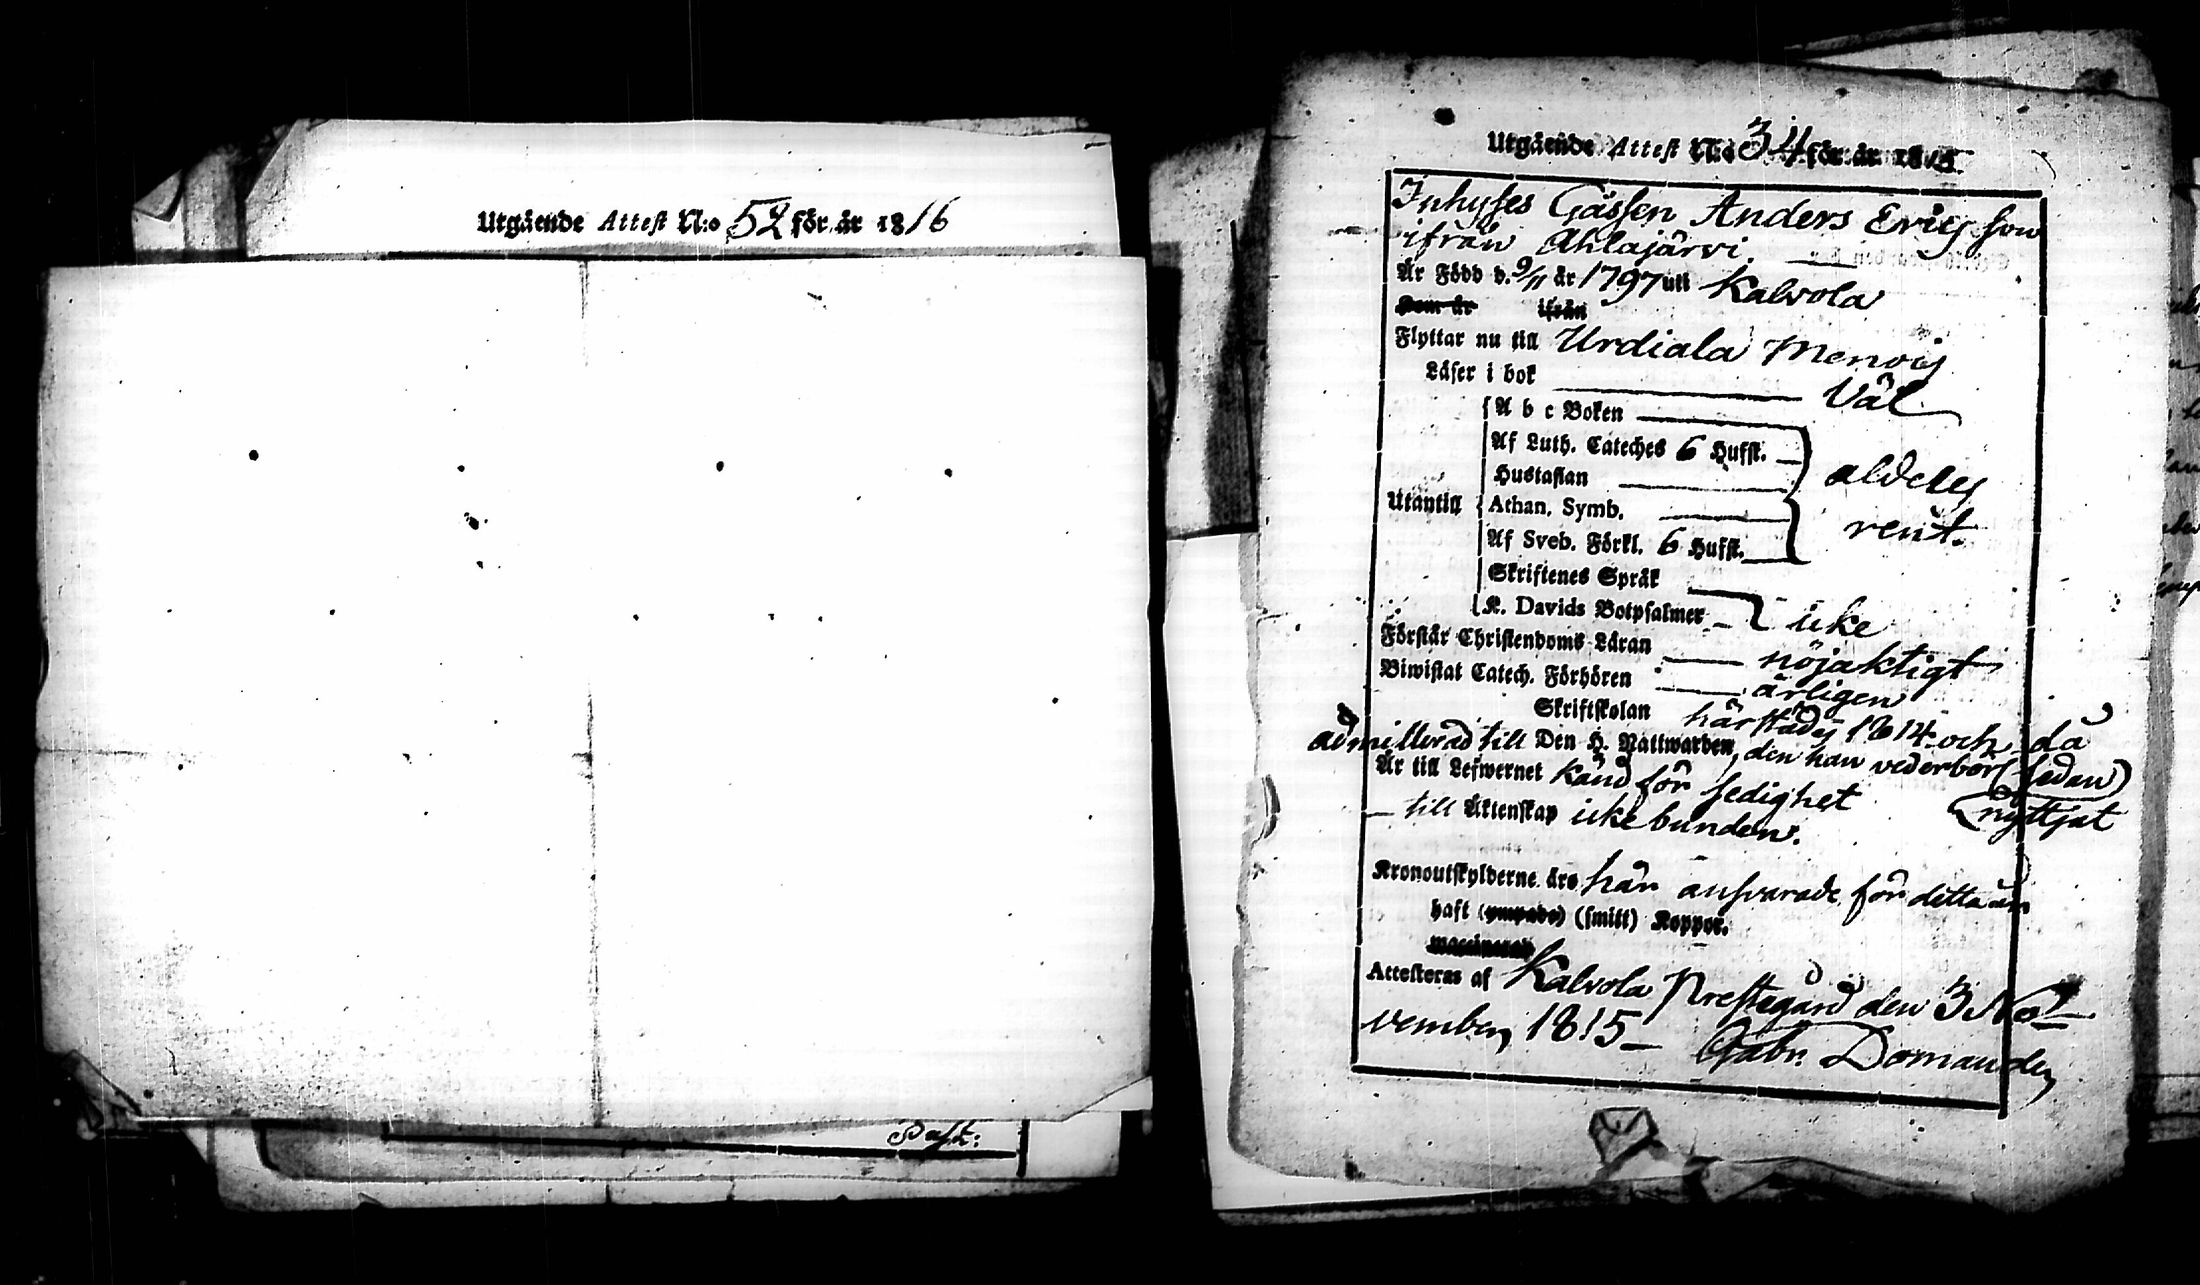 Utgående Attest N:o 52 för år 1816
Past:
Utgående Attest N:o 34 för år 1815
Inhyses Gässen Anders Ericsson
ifrån Ahlajärvi.
Är Född d. 9/11 år 1797 uti Kalvola
Som är ifrån
Flyttar nu till Urdiala Menois
Läser i bok Väl
A b c Boken
Af Luth. Cateches 6 Hufst.
Hustaflan aldeles
Utantill Athan. Symb. rent.
Af Sveb. Förkl. 6 Hufst.
Skriftenes Språk
K. Davids Botpsalmer icke
Förstår Christendoms Läran nöjaktigt
Biwistat Catech. Förhören årligen
Skriftskolan härstädes 1814 och då
admitterad till Den H. Nattwarden, den han vederbör (sedan)
Är till Lefwernet Känd för sedighet (nyttjat
till Äktenskap icke bunden.
Kronoutskylderne äro här ansvarade för detta år
haft (ympade) (smitt) Koppor.
vaccinerad
Attesteras af Kalvola Prestegård den 3 No-
vember 1815 Gabr. Domander